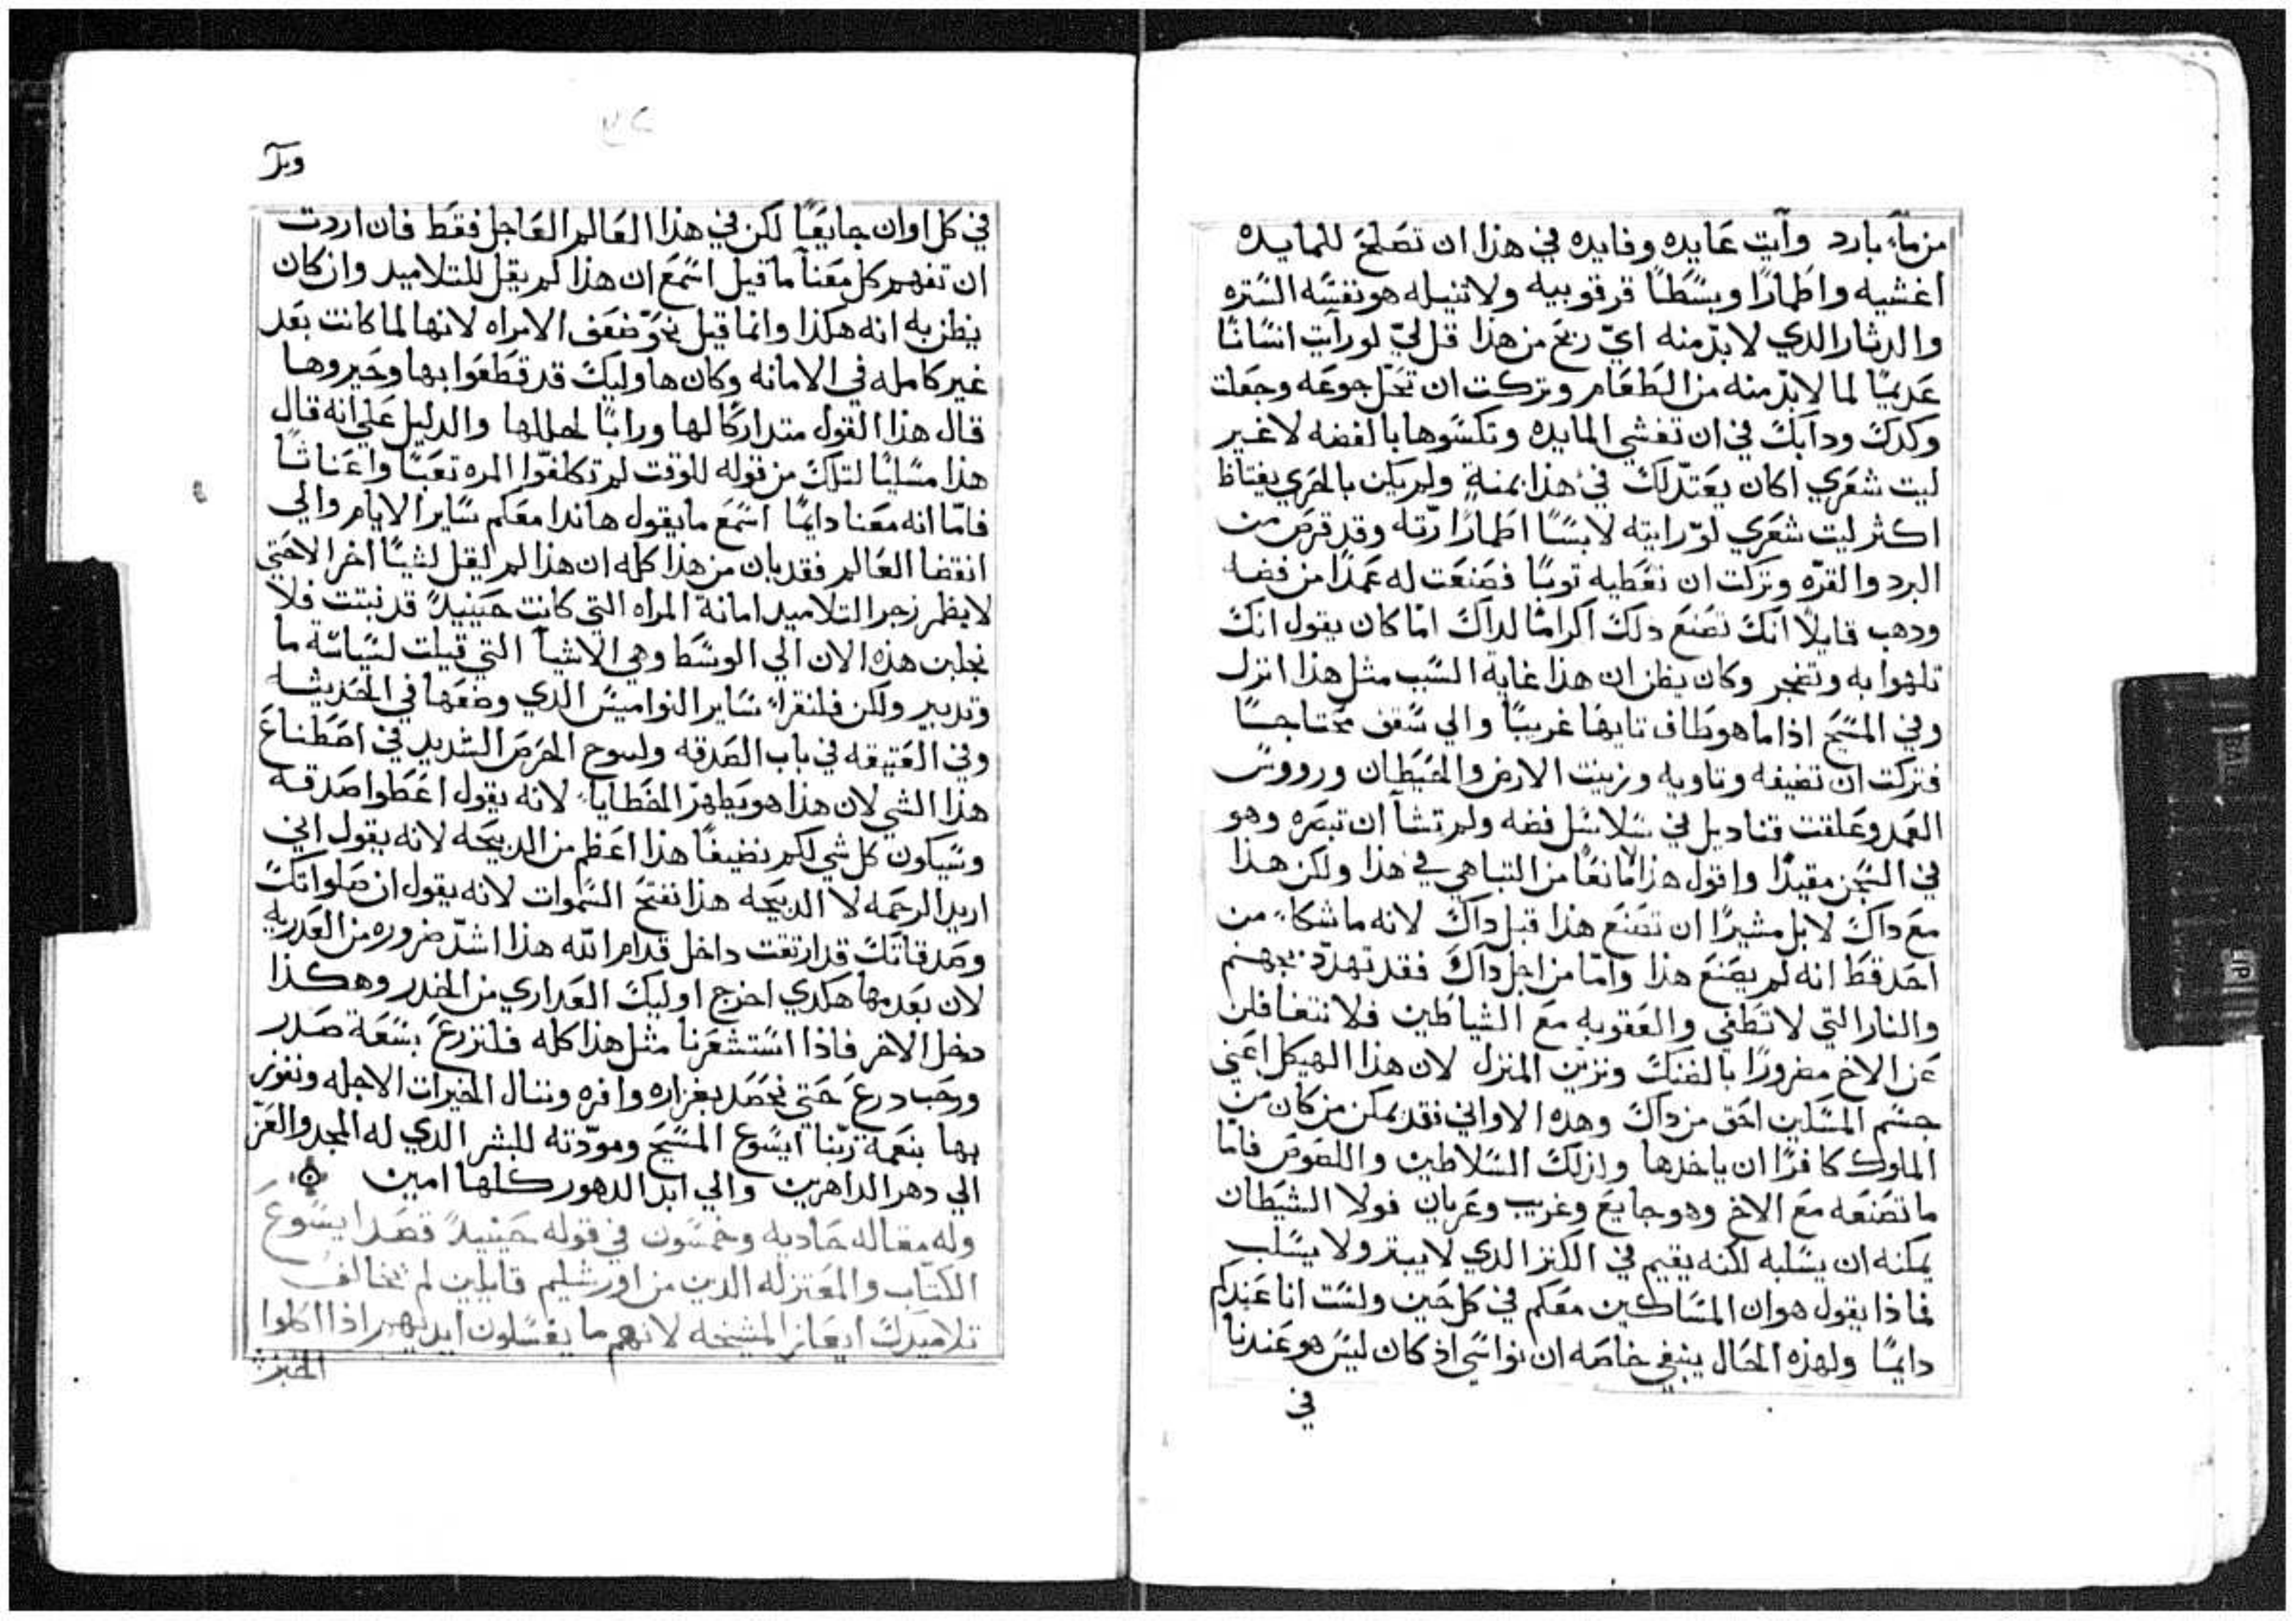 من ماء بارد وآيت عايده وفايده في هذا ان تصلح للمايده
اغشيه واطمارًا وبسطًا قرقوبيه ولا تنيله هو نفسه الستره
والدثار الدي لا بدّ منه ايّ ربح من هذا قل ليّ لو رآيت انسانًا
عديمًا لما لا بدّ منه من الطعام وتركت ان تحلّ جوعه وجعلت
وكدك ودآبك في ان تغشي المايده وتكسوها بالفضه لا غير
ليت شعري اكان يعتدّ لك في هذا بمنةٍ ولم يكن بالحري يغتاظ
اكثر ليت شعري لوّ رايته لابسًا اطمارًا رّته وقد قرص من
البرد والقرّه وتركت ان تعطيه توبًا فصنعت له عمدًا من فضه
ودهب قايلاً انك تصنع دلك اكرامًا لداك امّا كان يقول انك
تلهوا به وتضجر وكان يظن ان هذا غاية السبب مثل هذا انزل
وفي المسيح اذا ما هو طاف تايهًا غريبًا والي سقف محتاجًا
فتركت ان تضيفه وتاويه وزينت الارض والحيطان ورووس
العمد وعلقت قناديل في سلاسل فضه ولم تشآ ان تبصره وهو
في السجن مقيدًا واقول هذا لا مانعًا من التباهي في هذا ولكن هذا
مع داك لا بل مشيرًا ان تصنع هذا قبل داك لانه ما شكاء من
احد قط انه لم يصنع هذا وامّا من اجل داك فقد تهدّد بجهنم
والنار التي لا تطفي والعقوبه مع الشياطين فلا نتغافلن
عن الاخ مضرورًا بالضنك ونزيّن المنزل لان هذا الهيكل اعني
جسم المسكين احق من داك وهده الاواني فقد يمكن من كان من
الملوك كافرًا ان ياخدها وكذلك السلاطين واللصوص فامّا
ما تصنعه مع الاخ وهو جايع وغريب وعريان فولا الشيطان
يمكنه ان يسلبه لكنه يقيم في الكنز الدي لا يبيد ولا يسلب
فماذا يقول هو ان المساكين معكم في كل حين ولست انا عندكم
دايمًا ولهذه الحال ينبغي خاصه ان نواسي اذ كان ليس هو عندنا
في
وبر
في كل اوان جايعًا لكن في هذا العالم العاجل فقط فان اردت
ان تفهم كل معنآ ما قيل اسمع ان هذا لم يقل للتلاميد وان كان
يظن به انه هكذا وانما قيل نحوّ ضعف الامراه لانها لما كانت بعد
غير كامله في الامانه وكان هاوليك قد قطعوا بها وحيروها
قال هذا القول متداركًا لها ورابًا لحللها والدليل علي انه قال
هذا مسليًا لتلك من قوله للوقت لم تكلفوّا المره تعبًا واعناتًا
فامّا انه معنا دايمًا اسمع ما يقول هاندا معكم ساير الايام والي
انقضا العالم فقد بان من هذا كله ان هذا لم يقل لشيًا اخر الا حتي
لا يظمر زجر التلاميد امانة المراه التي كانت حينيدً قد نبتت فلا
نجلبن هذه الان الي الوسط وهي الاشيآ التي قيلت لسياسة ما
وتدبير ولكن فلنقرا ساير النواميس الدي وضعها في الحديثه
وفي العتيقه في باب الصدقه الحرص الشديد في اصطناع
هذا الشي لان هذا هو يطهرّ الخطايا لانه يقول اعطوا صدقه
وسيكون كل شي لكم نضيفًا هذا اعظم من الدبيحه لانه يقول اني
اريد الرحمه لا الدبيحه هذا تفتح السموات لانه يقول ان صلواتك
وصدقاتك قد ارتقت داخل قدام الله هذا اشدّ ضروره من العدريه
لان بعدمها هكدي اخرج اوليك العداري من الخدر وهكذا
دخل الاخر فاذا استشعرنا مثل هذا كله فلنزرع بسعة صدر
ورحب درع حتي نحصد بغزاره وافره وننال الخيرات الاجله ونفوز
بها بنعمة ربّنا ايسوع المسيح ومودّته للبشر الدي له المجد والعزّ
الي دهر الداهرين والي ابد الدهور كلها امين
وله مقاله حاديه وخمسون في قوله حينيدً قصد ايسوع
الكتاب والمعتزله الدين من اورشليم قايلين لم تخالف
تلاميدك ايعاز المشيخه لانهم ما يغسلون ايديهم اذا اكلوا
الخبز